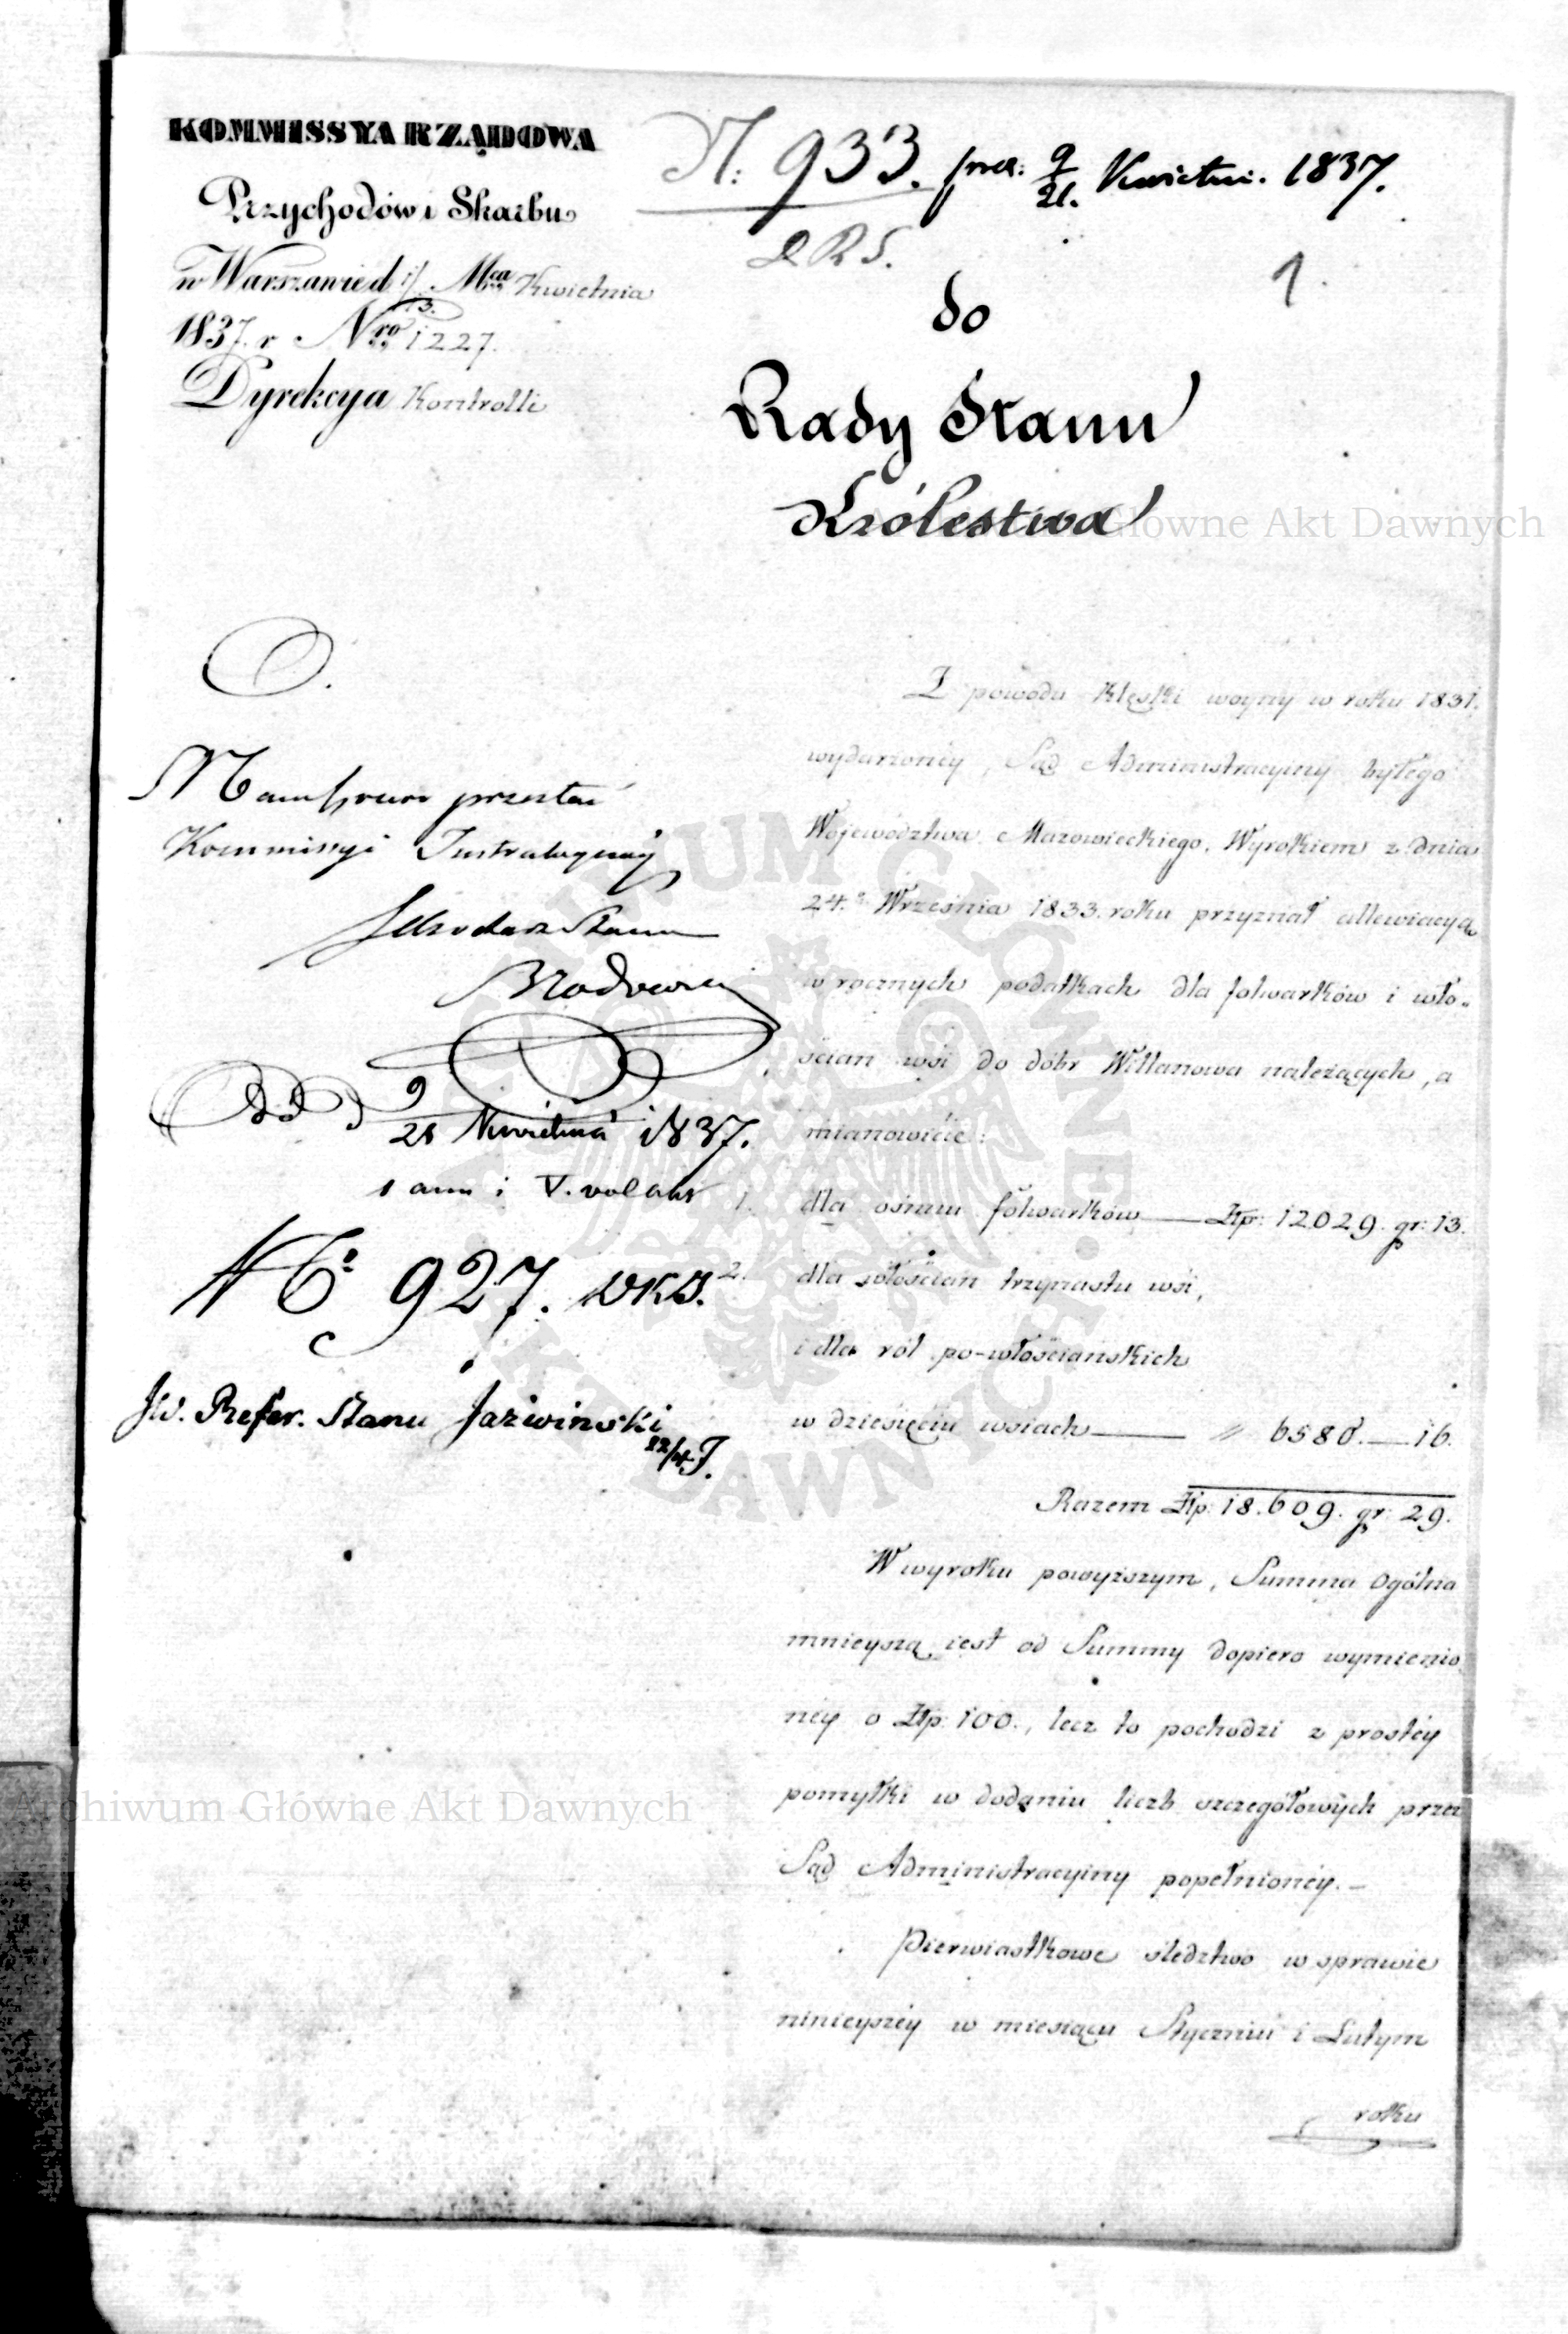 KOMMISSYA RZĄDOWA
Przychodów i Skarbu
w Warszawie d 1/13. Mca Kwietnia
1837. r. Nro 1227.
Dyrekcya Kontrolli
N: 933. prez: 9/21. Kwietni. 1837.
D R S.
1.
do
Rady Stanu
Królestwa
przesłać
Kommissyi
Sekretarz Stanu
9/21 Kwietnia 1837.
No 927. DKS.
JW. Refer. Stanu Jaźwiński
22/4 J.
Z powodu klęski woyny w roku 1831.
wydarzonéy, Sąd Administracyiny byłego
Województwa Mazowieckiego, Wyrokiem z dnia
24.o Września 1833. roku przyznał allewiacyą
w rocznych podatkach dla folwarków i wło-
ścian wsi do dóbr Willanowa należących, a
mianowicie:
1. dla ośmiu folwarków — Złp: 12029. gr: 13.
2. dla włościan trzynastu wsi,
i dla ról po-włościańskich
w dziesięciu wsiach — " 6580. — 16.
Razem Złp: 18.609. gr: 29.
W wyroku powyższym, Summa ogólna
mnieyszą iest od Summy dopiero wymienio
néy o Złp: 100., lecz to pochodzi z prostéy
pomyłki w dodaniu liczb szczegółowych przez
Sąd Administracyiny popełnionéy. –
Pierwiastkowe śledztwo w sprawie
ninieyszéy w miesiącu Styczniu i Lutym
roku
Archiwum Główne Akt Dawnych
Główne Akt Dawnych
ARCHIWUM GŁÓWNE AKT DAWNYCH